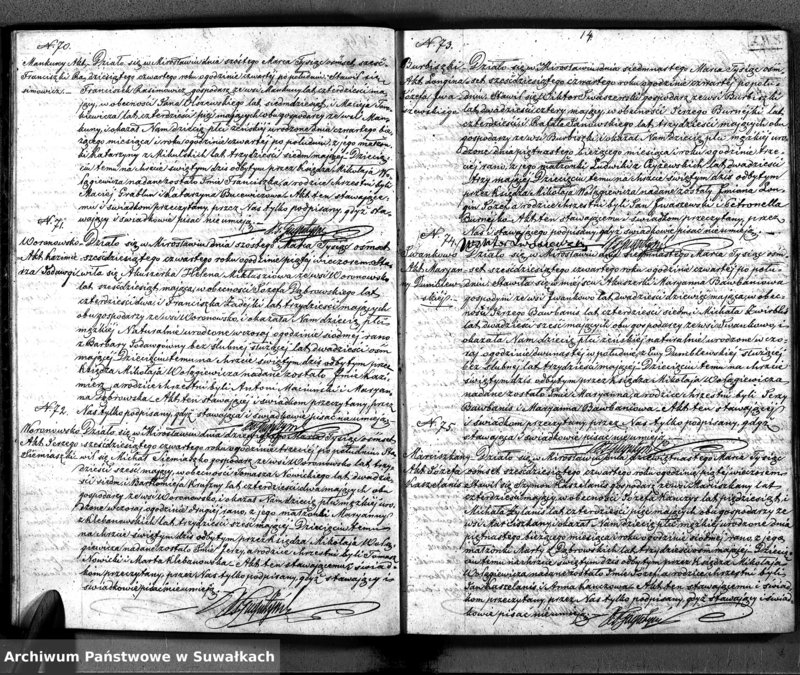 N. 70.
Mankuny Akt Działo się w Mirosławiu dnia szóstego Marca Tysiąc ośmset sześć
Franciszki Ra dziesiątego czwartego roku o godzinie czwartej po południu. Stawił się
simowicz Franciszek Rasimowicz, gospodarz ze wsi Mankuny lat czterdzieści ma
jący, w obecności Jana Olszewskiego lat siedmdziesiąt, i Macieja Jan
kiewicza lat czterdzieści pięć mających obu gospodarzy ze wsi Man
kuny, i okazał Nam dziecię płci żeńskiej urodzone dnia czwartego bie
żącego miesiąca i roku o godzinie czwartej po południu, z jego małżon
ki Katarzyny z Mikulskich lat trzydzieści siedm mającej. Dziecię
ciu temu na chrzcie świętym dziś odbytym przez Księdza Mikołaja Wo
łągiewicza nadane zostało Imię Franciszka, a rodzicami chrzestnymi byli
Maciej Grablun i Katarzyna Bieniewiczowa. Akt ten stawające
mu i świadkom przeczytany, przez Nas tylko podpisany, gdyż sta
wający i świadkowie pisać nie umieją.
N. 71.
Woronowsko Działo się w Mirosławiu dnia szóstego Marca Tysiąc ośmset
Akt Kazimie sześćdziesiątego czwartego roku o godzinie piątej wieczorem. Sta
rza Todowgi wiła się Akuszerka Helena Mikłuszowa ze wsi Woronowsko
lat sześćdziesiąt mająca, w obecności Józefa Dąbrowskiego lat
czterdzieści dwa i Franciszka Zadejki lat trzydzieści mających
obu gospodarzy ze wsi Woronowsko, i okazała Nam dziecię płci
męzkiej Naturalnie urodzone wczoraj o godzinie siódmej rano
z Barbary Todowgowny bez ślubnej służącej lat dwadzieścia ośm
mającej. Dziecięciu temu na chrzcie świętym dziś odbytym przez
Księdza Mikołaja Wołągiewicza nadane zostało Imię Kazi
mierz, a rodzicami chrzestnymi byli Antoni Maciunski i Maryan
na Dąbrowska. Akt ten stawającej i świadkom przeczytany, przez
Nas tylko podpisany, gdyż stawająca i świadkowie pisać nie umieją.
N. 72.
Woronowsko Działo się w Mirosławiu dnia Marca Tysiąc ośmset
Akt Jerzego sześćdziesiątego czwartego roku o godzinie trzeciej po południu. Sta
Ziemiaski wił się Michał Ziemiaszko gospodarz ze wsi Woronowsko lat trzy
dzieści sześć mający, w obecności Tomasza Nowickiego lat dwadzie
ścia siedm i Bartłomieja lat czterdzieści dwa mających obu
gospodarzy ze wsi Woronowska, i okazał Nam dziecię płci męzkiej uro
dzone wczoraj o godzinie drugiej rano z jego małżonki Maryanny
z Klebanowskich lat trzydzieści sześć mającej. Dziecięciu temu
na chrzcie świętym dziś odbytym przez Księdza Mikołaja Wołą
giewicza nadane zostało Imię Jerzy, a rodzicami chrzestnymi byli Tomasz
Nowicki i Marta Klebanowska. Akt ten stawającemu i świad
kom przeczytany, przez Nas tylko podpisany, gdyż stawający i
świadkowie pisać nie umieją.
14
N. 73.
Burbiszki Działo się w Mirosławiu dnia siedmnastego Marca Tysiąc ośm
Akt Longina set sześćdziesiątego czwartego roku o godzinie czwartej po połu
Józefa Iwa dniu. Stawił się Wiktor Iwaszewski gospodarz ze wsi Burbiszki
szewskiego lat dwadzieścia cztery mający, w obecności Jerzego Burnejki lat
czterdzieści i lat trzydzieści mających obu
gospodarzy ze wsi Burbiszki, i okazał Nam dziecię płci męzkiej uro
dzone dnia piętnastego bieżącego miesiąca i roku o godzinie trze
ciej rano, z jego małżonki Ludwiki z Ryżewskich lat dwadzieścia
trzy mającej. Dziecięciu temu na chrzcie świętym dziś odbytym
przez Księdza Mikołaja Wołągiewicza nadane zostały Imiona Lon
gin Józef, a rodzicami chrzestnymi byli Jan Iwaszewski i Petronella
Burnejko. Akt ten stawającemu i świadkom przeczytany, przez
Nas i stawającego podpisany, gdyż świadkowie pisać nie umieją.
N. 74.
Iwankowo Działo się w Mirosławiu dnia siedmnastego Marca Tysiąc ośm
Akt Maryan set sześćdziesiątego czwartego roku o godzinie czwartej po połu
ny dniu. Stawiła się w miejscu Akuszerki Maryanna Bawbaniowa
gospodyni ze wsi Iwankowo lat dwadzieścia dziewięć mająca, w obec
ności Jerzego Bawbania lat trzydzieści siedm i Michała
lat dwadzieścia sześć mających obu gospodarzy ze wsi Iwankowo, i
okazała Nam dziecię płci żeńskiej naturalnie urodzone wczo
raj o godzinie dwunastej w południe, z służącej
bez ślubnej lat trzydzieści mającej. Dziecięciu temu na chrzcie
świętym dziś odbytym przez Księdza Mikołaja Wołągiewicza
nadane zostało Imię Maryanna, a rodzicami chrzestnymi byli Jerzy
Bawbanis i Maryanna Bawbaniowa. Akt ten stawającej
i świadkom przeczytany, przez Nas tylko podpisany, gdyż
stawająca i świadkowie pisać nie umieją.
N. 75.
Mariszkany Działo się w Mirosławiu dnia Marca Tysiąc
Akt Józefa ośmset sześćdziesiątego czwartego roku o godzinie piątej wieczorem.
Kaszelanis Stawił się Szymon Kaszelanis gospodarz ze wsi Mariszkany lat
czterdzieści mający, w obecności Józefa lat pięćdziesiąt i
Michała lat czterdzieści pięć mających obu gospodarzy ze
wsi Mariszkany, i okazał Nam dziecię płci męzkiej urodzone dnia
piętnastego bieżącego miesiąca i roku o godzinie siódmej rano z jego
małżonki Marty z Dąbrowskich lat trzydzieści ośm mającej. Dziecię
ciu temu na chrzcie świętym dziś odbytym przez Księdza Mikołaja
Wołągiewicza nadane zostało Imię Józef, a rodzicami chrzestnymi byli
i Anna. Akt ten stawającemu i świad
kom przeczytany, przez Nas tylko podpisany, gdyż stawający i świad
kowie pisać nie umieją.
Archiwum Państwowe w Suwałkach